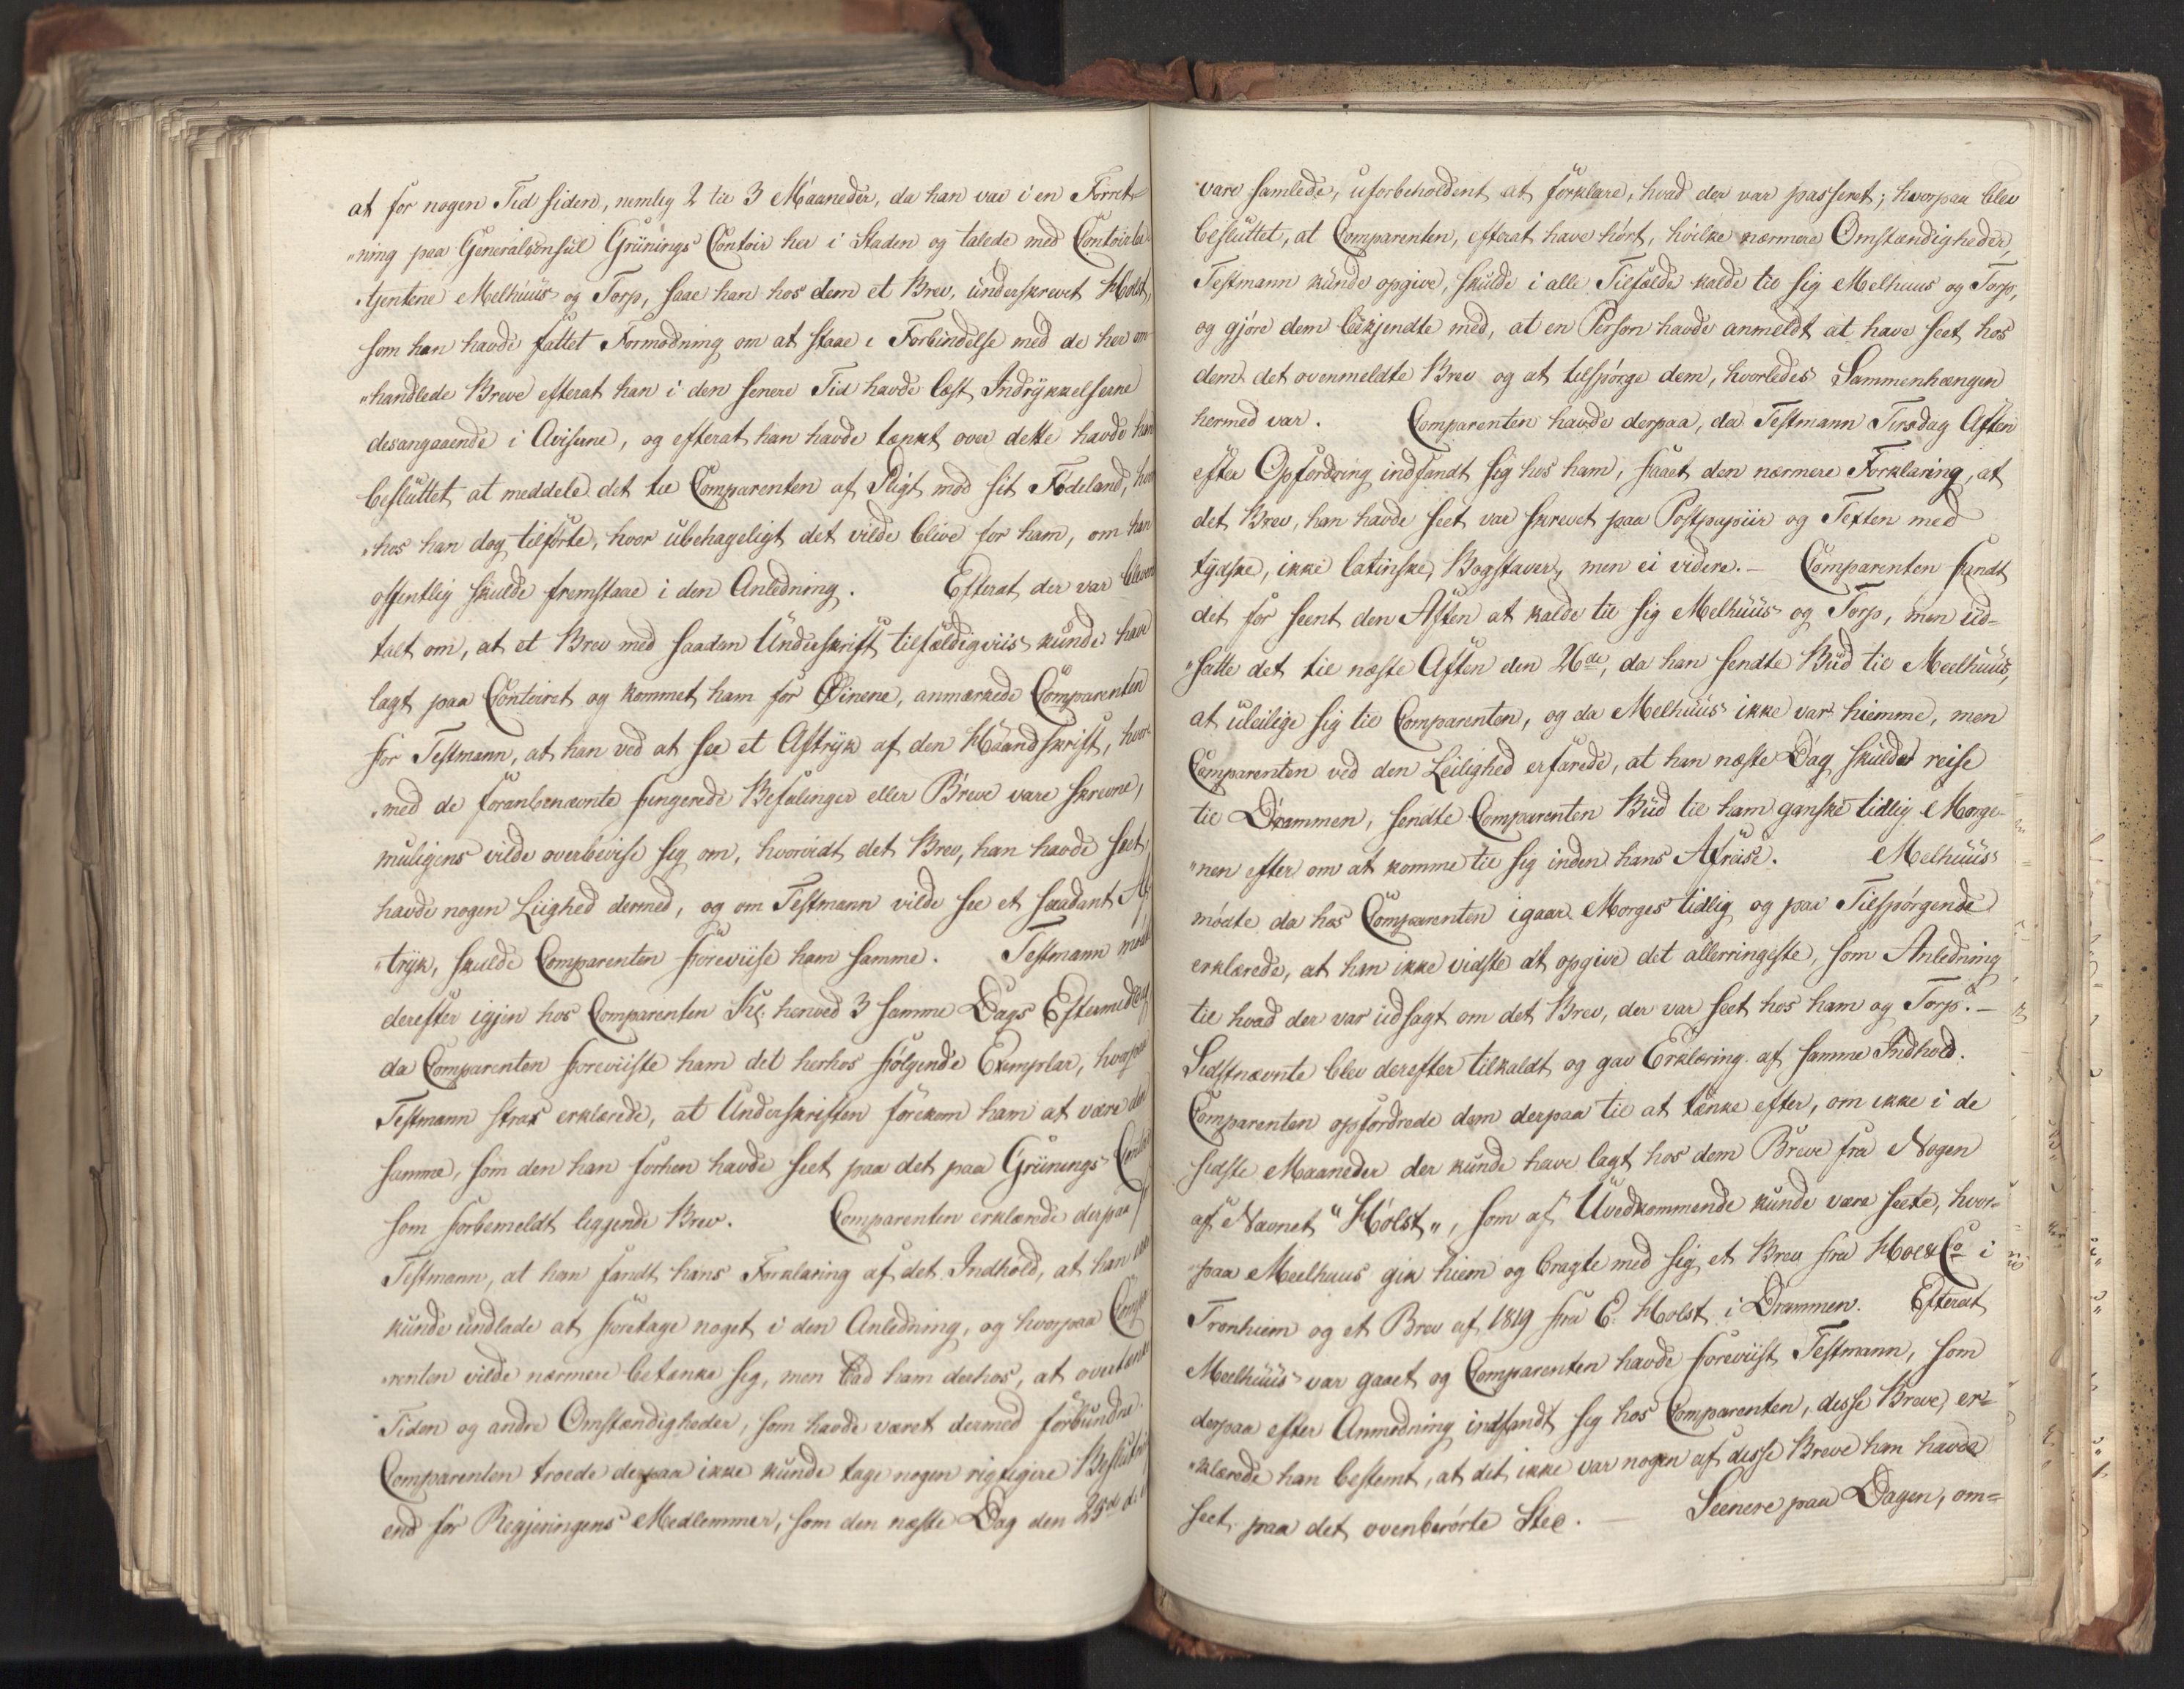 at for nogen Tid siden, nemlig 2 til 3 Maaneder, da han var i en Forret-
„ning paa Generalconsul Grünings Contoir her i Staden og talede med Contoirbe-
„tjentene Melhuus og Torp, saae han hos dem et Brev, underskrevet Holst,
som han havde fattet Formodning om at staae i Forbindelse med de her om-
„handlede Breve efterat han i den senere Tid havde læst Indrykkelserne
desangaaende i Aviserne, og efterat han havde tænkt over dette havde han
besluttet at meddele det til Comparenten af Pligt mod sit Fødeland, hvor-
„hos han dog tilførte, hvor ubehageligt det vilde blive for ham, om han
offentlig skulde fremstaae i den Anledning. Efterat der var bleven
talt om, at et Brev med saadan Underskrift tilfældigviis kunde have
lagt paa Contoiret og kommet ham for Øinene, anmærkede Comparenten
for Testmann, at han ved at see et Aftryk af den Haandskrift, hvor-
„med de foranbenævnte fungerede Befalinger eller Breve vare skrevne,
muligens vilde overbevise sig om, hvorvidt det Brev, han havde seet,
havde nogen Liighed dermed, og om Testmann vilde see et saadant Af-
„tryk, skulde Comparenten foreviise ham samme. Testmann mødte
derefter igjen hos Comparenten Kl. henved 3 samme Dags Eftermiddag
da Comparenten foreviiste ham det herhos følgende Exemplar, hvorpaa
Testmann strax erklærede, at Underskriften forekom ham at være den
samme, som den han forhen havde seet paa det paa Grünings Contoir
som forbemeldt liggende Brev. Comparenten erklærede derpaa for
Testmann, at han fandt hans Forklaring af det Indhold, at han
kunde undlade at foretage noget i den Anledning, og hvorpaa Compa-
„renten vilde nærmere betænke sig, men bad ham derhos, at overtænke
Tiden og andre Omstændigheder, som havde været dermed forbundne.
Comparenten troede derpaa ikke kunde tage nogen rigtigere Beslutning
end for Regjeringens Medlemmer, som den næste Dag den 25de
vare samlede, uforbeholdent at forklare, hvad der var passeret; hvorpaa blev
besluttet, at Comparenten, efterat have hørt, hvilke nærmere Omstændigheder,
Testmann kunde opgive, skulde i alle Tilfælde kalde til sig Melhuus og Torp,
og gjøre dem bekjendte med, at en Person havde anmeldt at have seet hos
dem det ovenmeldte Brev og at tilspørge dem, hvorledes Sammenhængen
hermed var. Comparenten havde derpaa, da Testmann Tirsdag Aften
efter Opfordring indfandt sig hos ham, faaet den nærmere Forklaring, at
det Brev, han havde seet var skrevet paa Postpapiir og Texten med
tydske, ikke latinske, Bogstaver, men ei videre. – Comparenten fandt
det for seent den Aften at kalde til sig Melhuus og Torp, men ud-
„satte det til næste Aften den 26de, da han sendte Bud til Meelhuus,
at uleilige sig til Comparenten, og da Melhuus ikke var hiemme, men
Comparenten ved den Leilighed erfarede, at han næste Dag skulde reise
til Drammen, sendte Comparenten Bud til ham ganske tidlig Morge-
„nen efter om at komme til sig inden hans Afreise. Melhuus
mødte da hos Comparenten igaar Morges tidlig og paa Tilspørgende
erklærede, at han ikke vidste at opgive det allerringeste, som Anledning
til hvad der var udsagt om det Brev, der var seet hos ham og Torp. –
Sidstnævnte blev derefter tilkaldt og gav Erklæring af samme Indhold.
Comparenten opfordrede dem derpaa til at tænke efter, om ikke i de
sidste Maaneder der kunde have lagt hos dem Breve fra Nogen
af Navnet "Holst", som af Uvedkommende kunde være seete, hvor-
„paa Meelhuus gik hiem og bragte med sig et Brev fra Hoe & Co i
Tronhiem og et Brev af 1819 fra E. Holst i Drammen. Efterat
Meelhuus var gaaet og Comparenten havde foreviist Testmann, som
derpaa efter Anmodning indfandt sig hos Comparenten, disse Breve, er-
„klærede han bestemt, at det ikke var nogen af disse Breve han havde
seet paa det ovenberørte Sted. – Seenere paa Dagen, om-